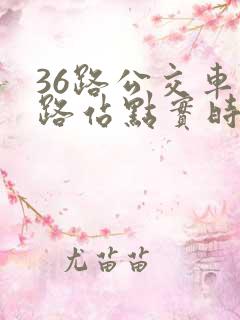 36路公交車
路佔點實時
尤苗苗